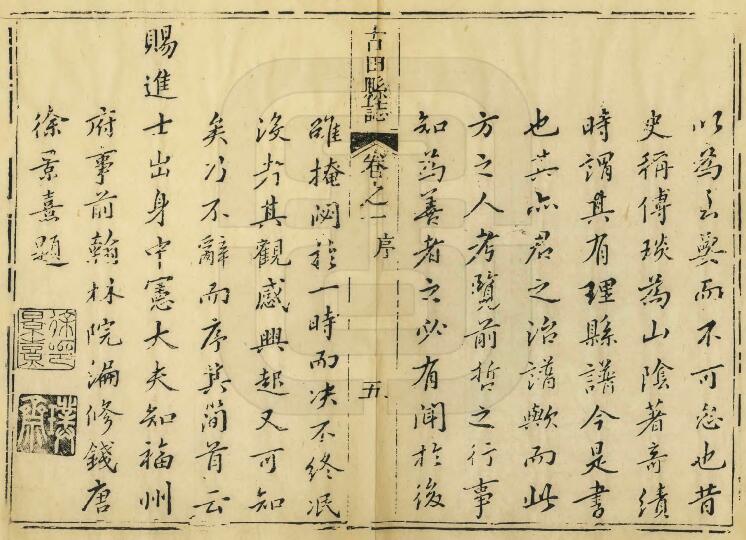 以為玄興而不可忽也昔
史稱傅琰為山陰著奇績
時謂其有理縣譜今是書
也其亦君之治譜歟而此
方之人考覽前哲之行事
知為善者之必有聞於後
古田縣誌
卷之一
序
五
雖掩閟於一時而决不終泯
沒於其觀感興起又可知
矣乃不辭而序其簡首云
賜進士出身中憲大夫知福州
府事前翰林院編修錢唐
徐景熹題
徐景熹印